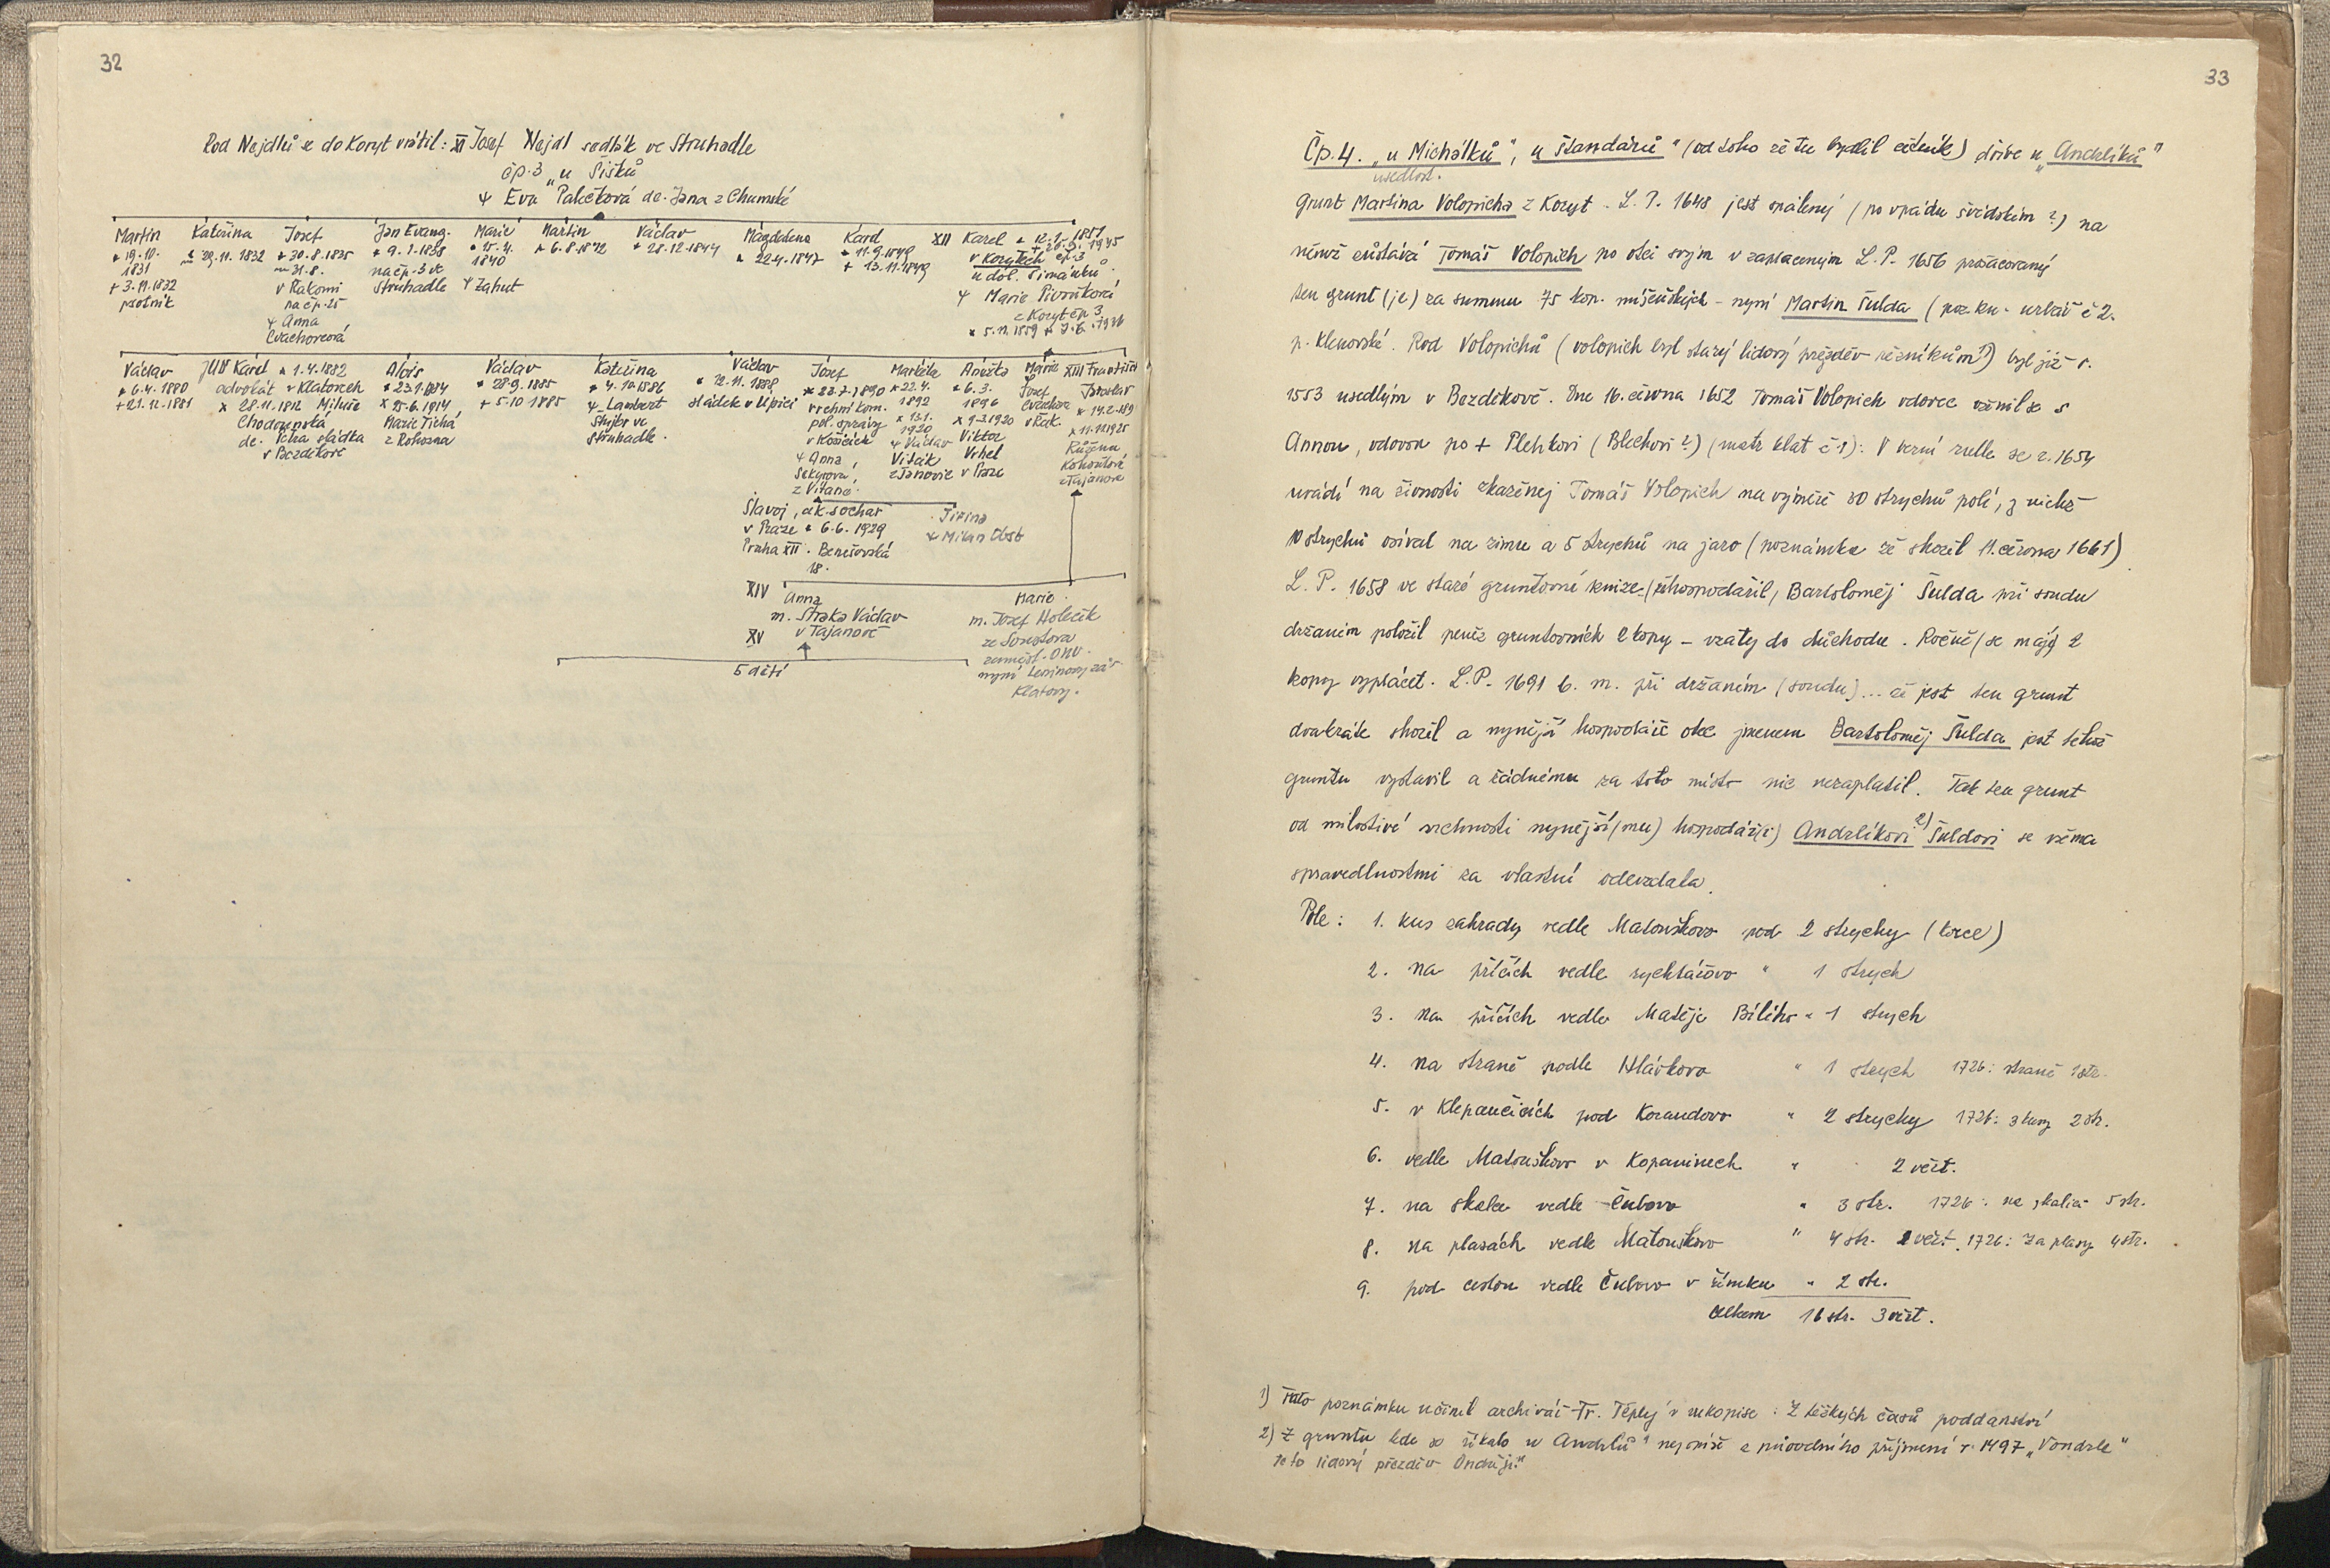 32
Rod Nejdlů se do Koryt vrátil: XI Josef Nejdl sedlák ve Struhadle
čp. 3 „u Šišků
⚭ Eva Palečková dc. Jana z Chumské
Martin
* 19.10.
1831
+ 3.11.1832
psotník
Kateřina
* 29.11.1832
Josef
* 30.8.1835
~ 31.8.
v Rakomi
na čp. 25
⚭ Anna
Cvachovcová
Jan Evang.
* 9.1.1838
na čp. 3 ve
Struhadle
Marie
* 15.4.
1840
⚭ Zahut
Martin
* 6.8.1842
Václav
* 28.12.1844
Magdalena
* 22.4.1847
Karel
* 11.9.1849
+ 13.11.1849
XII Karel * 12.1.1851
+ 26.9.1945
v Korytech čp. 3
u dol. Šimánků
⚭ Marie Pivoňková
z Koryt čp 3
* 5.12.1859 + 7.6.1936
Václav
* 6.4.1880
+ 21.12.1881
JUDr Karel * 1.4.1882
advokát v Klatovech
x 28.11.1812 Miluše
Chodounská
dc. Petra sládka
v Bezděkově
Alois
* 23.1.1884
x 25.6.1914
Marie Tichá
z Rohozna
Václav
* 28.9.1885
+ 5.10.1885
Kateřina
* 4.10.1886
⚭ Lambert
Štijbr ve
Struhadle.
Václav
* 12.11.1888
sládek v Úpici
Josef
* 22.7.1890
vrchní kom.
pol. správy
v Košicích
⚭ Anna
Sekyrová,
z Vítané
Markéta
* 22.4.
1892
x 13.1.
1920
⚭ Václav
Vítek
z Janovic
Anežka
* 6.3.
1896
x 9.3.1920
Viktor
Vrhel
v Praze
Marie
Josef
Cvachovec
v Rak.
XIII František
Jaroslav
* 14.2.189
x 11.11.1925
Růžena
Kohoutová
z Tajanova
Slavoj, ak. sochař
v Praze * 6.6.1929
Praha XII. Benešovská
18.
Jiřina
⚭ Milan Obst
XIV Anna
m. Straka Václav
v Tajanově
Marie
m. Josef Holeček
ze Sobětova
zaměst. ONV.
nyní Leninovy záv.
Klatovy.
XV
5 dětí
33
Čp. 4. „u Michálků“, „u Štandárů“ (od toho že tu bydlil četník) dříve u „Andrlíků“
usedlost.
Grunt Martina Volopicha z Koryt. L. P. 1648 jest spálený (po vpádu švédském?) na
němž zůstává Tomáš Volopich po otci svým v zaplaceným L. P. 1656 prošacovaný
ten grunt (je) za summu 75 kop. míšeňských – nyní Martin Šulda (poz. kn. urbář č 2.
p. Klenovské. Rod Volopichů (volopich byl starý lidový přezděv řezníkům 1)) byl již r.
1553 usedlým v Bezděkově. Dne 16. června 1652 Tomáš Volopich vdovec oženil se s
Annou, vdovou po + Plehkovi (Blechovi?) (matr. klat č. 1): V berní rulle se r. 1654
uvádí na živnosti zkažénej Tomáš Volopich na výměře 30 strychů polí, z nichž
10 strychů osíval na zimu a 5 strychů na jaro (poznámka že shořel 11. června 1661)
L. P. 1658 ve staré gruntovní knize (užhospodařil) Bartoloměj Šulda při soudu
držaném položil peněz gruntovních 2 kopy – vzaty do důchodu. Ročně (se mají) 2
kopy vyplácet. L. P. 1691 6. m. při držaném (soudu)... že jest ten grunt
dvakráte shořel a nynější hospodáře otec jmenem Bartoloměj Šulda jest tehož
gruntu vystavil a žádnému za toto místo nic nezaplatil. Tak ten grunt
od milostivé vrchnosti nynější(mu) hospodáři(i) Andrlíkovi 2) Šuldovi se všema
spravedlnostmi za vlastní odevzdala.
Pole: 1. kus zahrady vedle Matouškovo pod 2 strychy (korce)
2. na příčích vedle rychtářovo " 1 strych
3. na příčích vedle Matěje Bílého " 1 strych
4. na straně podle Hlávkovo " 1 strych 1726: straně 1 str.
5. v Klepančicích pod Korandovo " 2 strychy 1726: 3 kusy 2 str.
6. vedle Matouškovo v Kopaninech " 2 věrt.
7. na skalce vedle Čubovo " 3 str. 1726: na skalici 5 str.
8. na plasách vedle Matouškovo " 4 str. 1 věrt. 1726: za plasy 4 str.
9. pod cestou vedle Čubovo v žímku " 2 str.
celkem 16 str. 3 věrt.
1) Tuto poznámku učinil archivář Fr. Teplý v rukopise: Z těžkých časů poddanství
2) Z gruntu kde se říkalo u Andrlů“ nejspíše z původního příjmení r. 1497 „Vondrle“
Je to lidový přezděv Ondřeje“